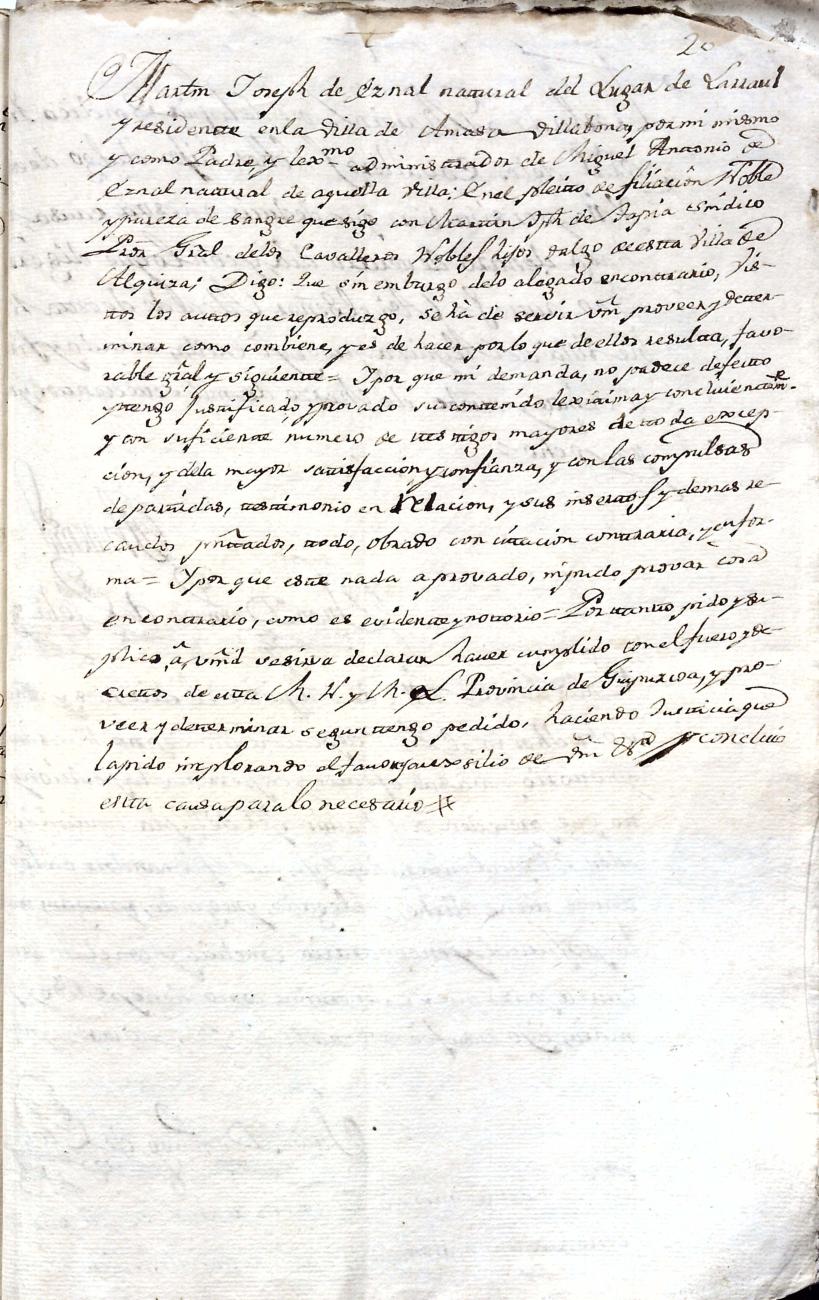 20
Martin Joseph de Eznal natural del Lugar de Larraul
y residentte en la Villa de Amasa Villabona, por mi mismo
y como Padre, y lexmo administrador de Miguel Antonio de
Eznal natural de aquella Villa; En el pleito de filiación Noble
y pureza de sangre que sigo con Martin Jph de Tapia Sindico
Pror Gral delos Cavalleros Nobles hijos dalgo de estta Villa de
Alquiza; Digo: Que sin embargo delo alegado encontrario, vis-
ttos los auttos que reproduzgo, se hà de servir Vm proveer y detter-
minar como combiene, y es de hacer por lo que de ellos resultta, favo-
rable gral y siguiente = Y por que mi demanda, no padece defectto
y ttengo Justificado y provado su conttenido lexitima y concluienttemte
y con suficientte número de ttesttigos mayores de ttoda excep-
ción, y dela mayor sattisfacción y confianza, y con las compulsas
de parttidas, testtimonio en relacion, y sus inserttos y demas re-
caudos pnttados, ttodo, obrado con cittación conttraria, y en for-
ma = Y por que estte nada a provado, ni pudo provar cosa
en conttrario, como es evidentte y nottorio = Por ttantto pido y su-
plico, à vmd se sirva declarar haver cumplido con el fuero y de-
crettos de estta M. N. y M. L. Provincia de Guipuzcoa, y pro-
veer y detterminar segun ttengo pedido, haciendo Justicia que
la pido implorando el favor y auxsilio de Vm y concluio
estta causa para lo necesario